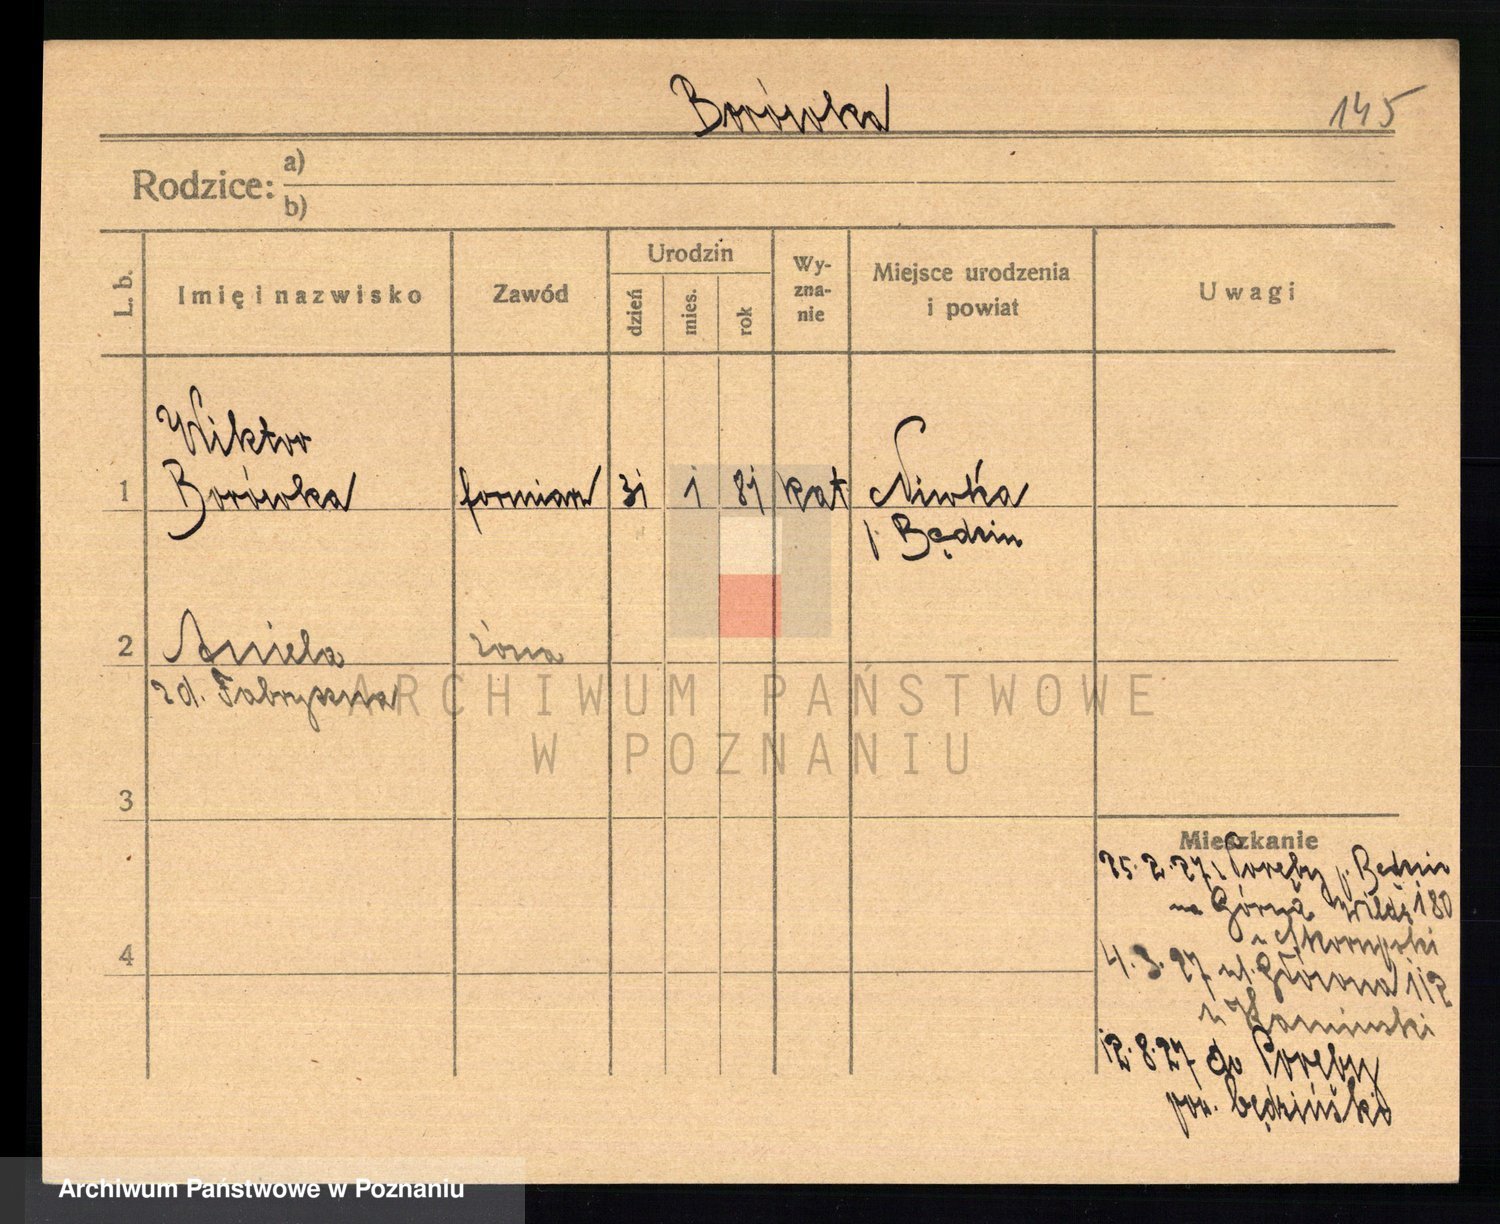 Borówka
145
Rodzice: a)
b)
L. b.
Imię i nazwisko
Zawód
Urodzin
dzień
mies.
rok
Wy-
zna-
nie
Miejsce urodzenia
i powiat
Uwagi
1
Wiktor
Borówka
formiarz
31
1
81
kat
Niwka
p. Będzin
2
Aniela
żona
zd. Fabryszna
3
4
Mieszkanie
25.2.27 z Poręby p. Będzin
na Górna Wilda 180
u Skorupski
4.3.27 ul.
112
u Kaminski
12.8.27 do Poręby
pow. będziński
ARCHIWUM PAŃSTWOWE
W POZNANIU
Archiwum Państwowe w Poznaniu